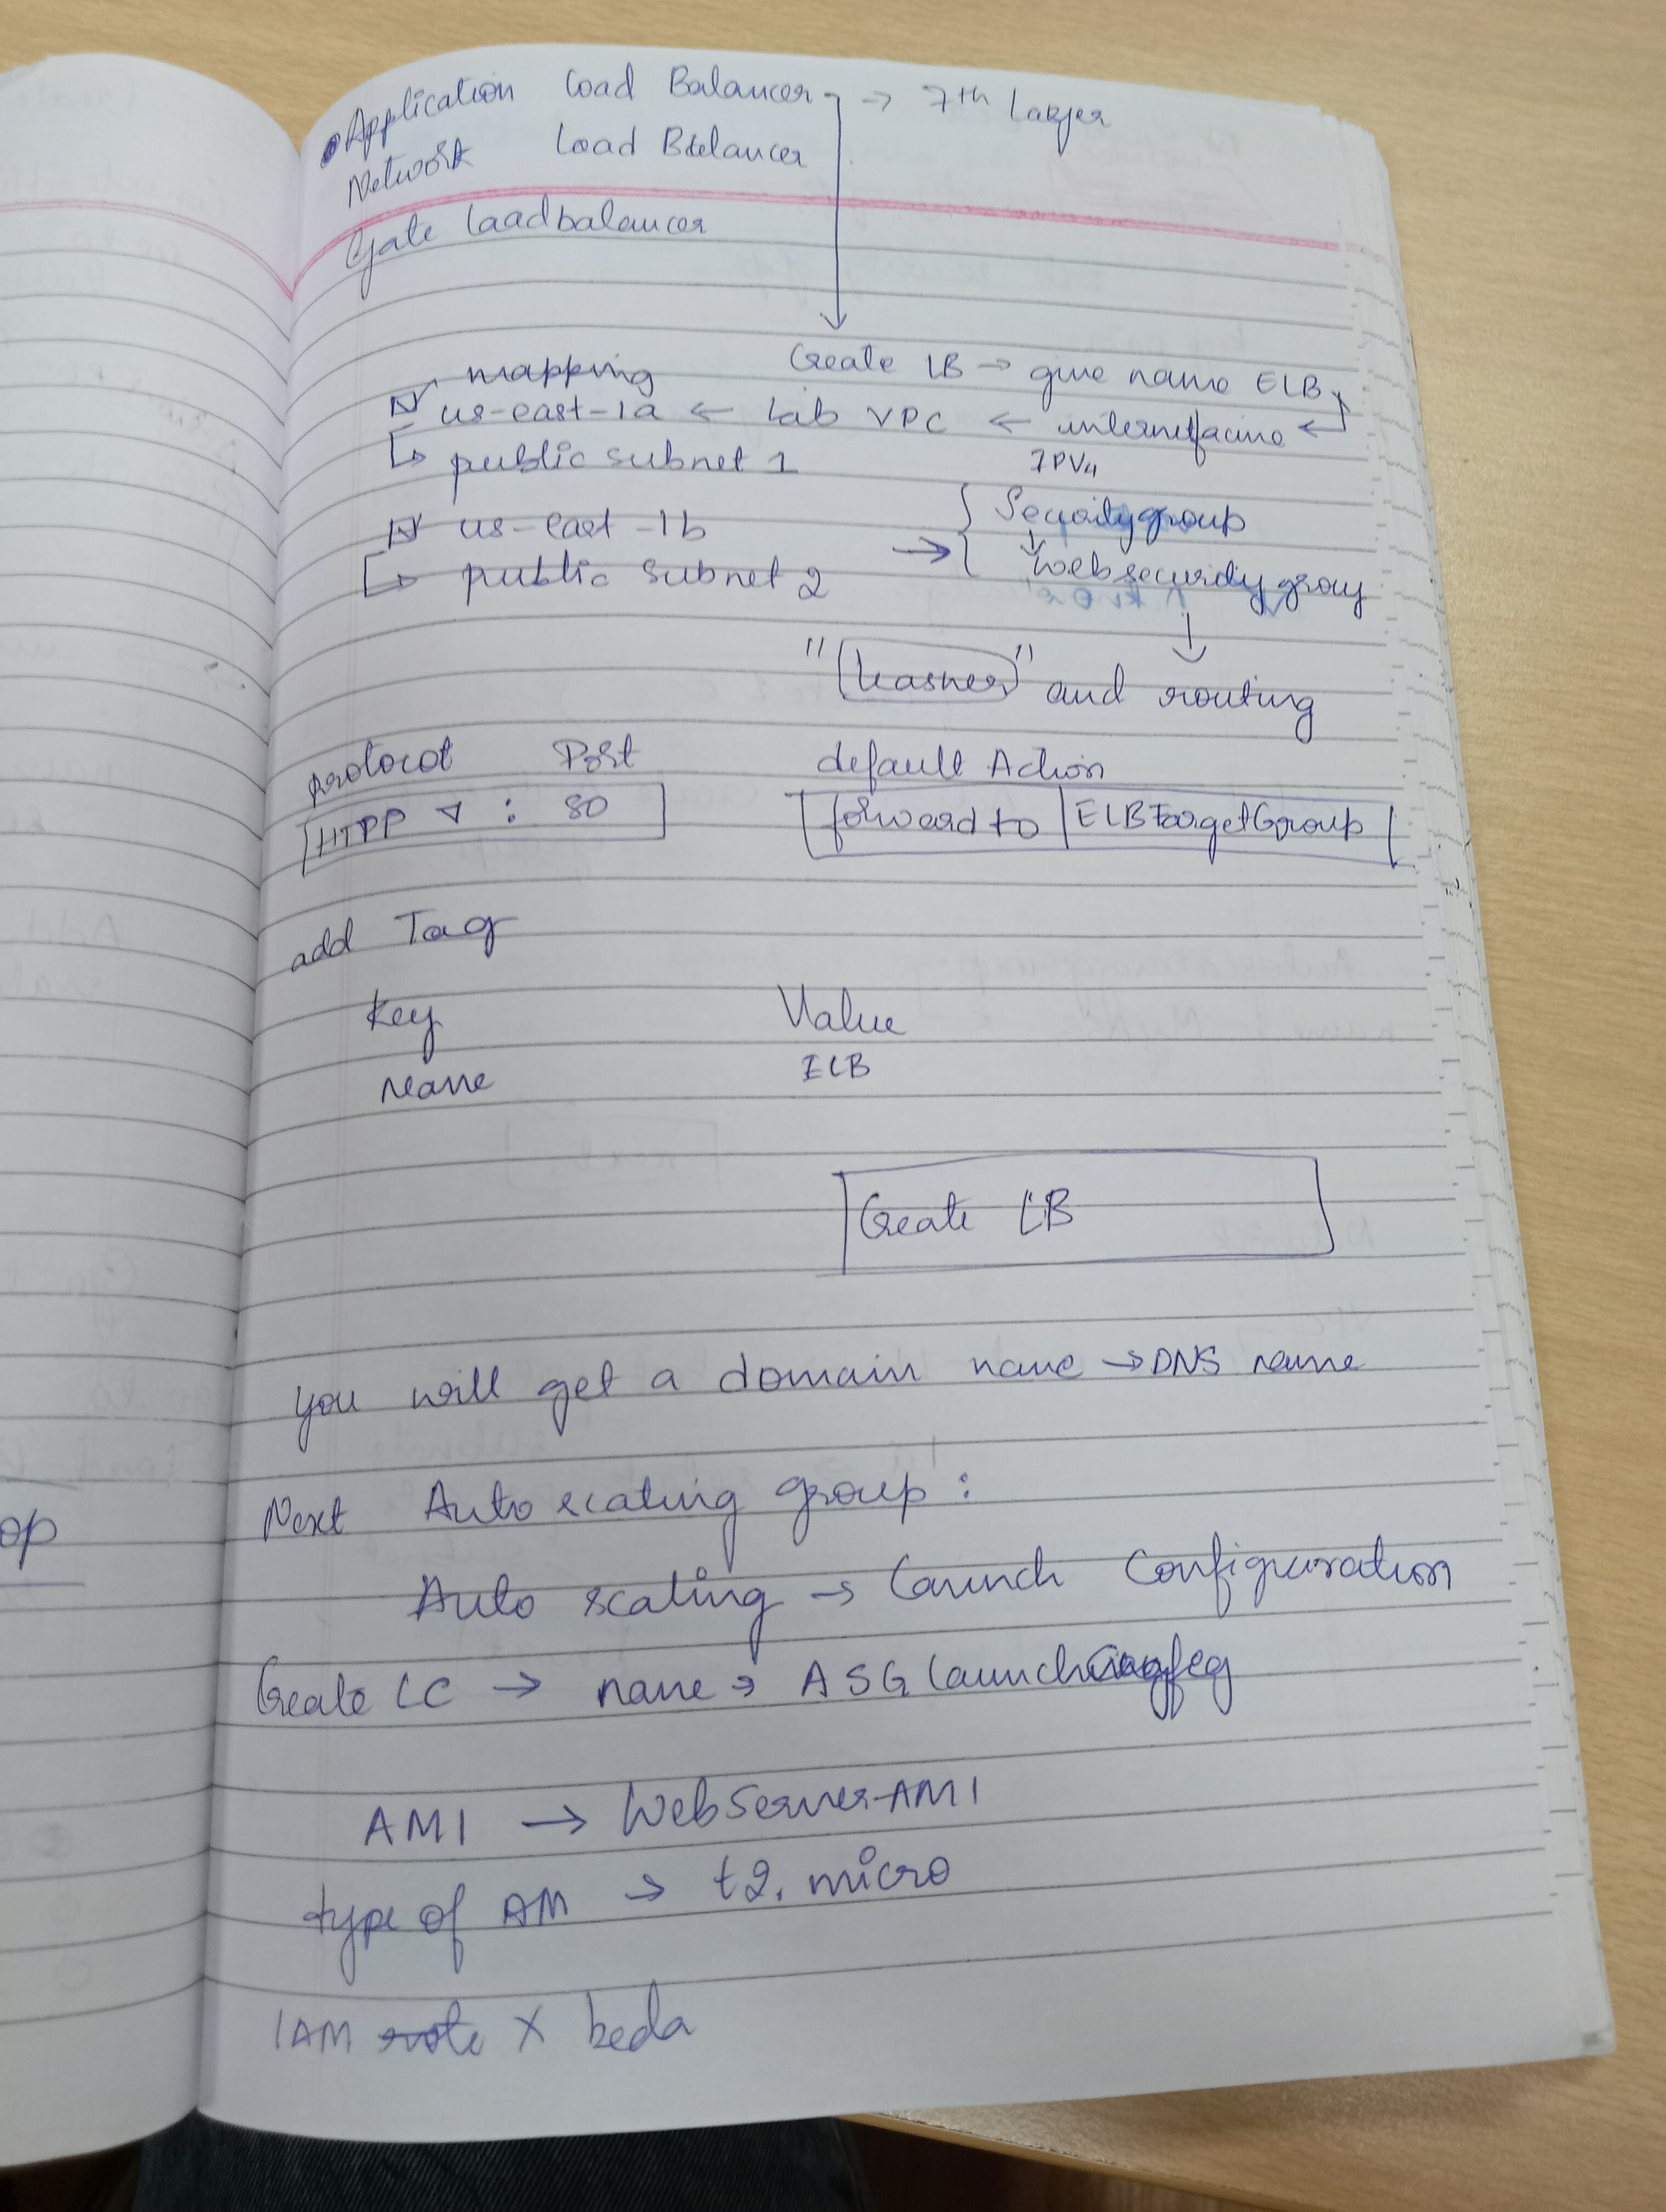 Application Load Balancer → 7th Layer
Network Load Balancer
Gate Loadbalancer
Create LB → give name ELB
mapping
us-east-1a ← Lab VPC ← internetfacing
public subnet 1
IPV4
us-east-1b
public subnet 2
→ { Security group
Web security group
" " and routing
protocol Port
default Action
HTPP : 80
forward to | ELBTargetGroup
add Tag
Key Value
Name ELB
Create LB
you will get a domain name → DNS name
op
Next Auto scaling group :
Auto scaling → Launch Configuration
Create LC → name → ASG Launch
AMI → WebServer-AMI
type of AM → t2.micro
IAM role X